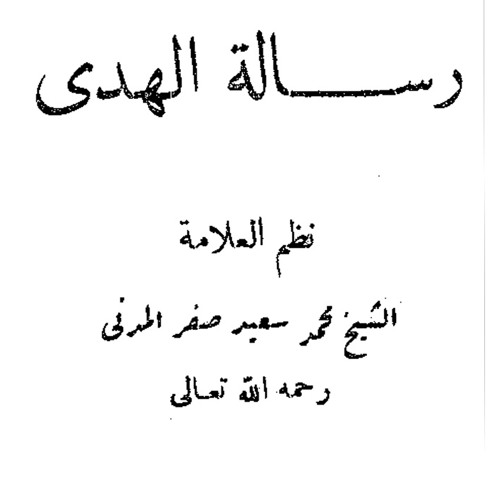 رسالة الهدى
نظم العلامة
الشيخ محمد سعيد صفر المدنى
رحمه الله تعالى